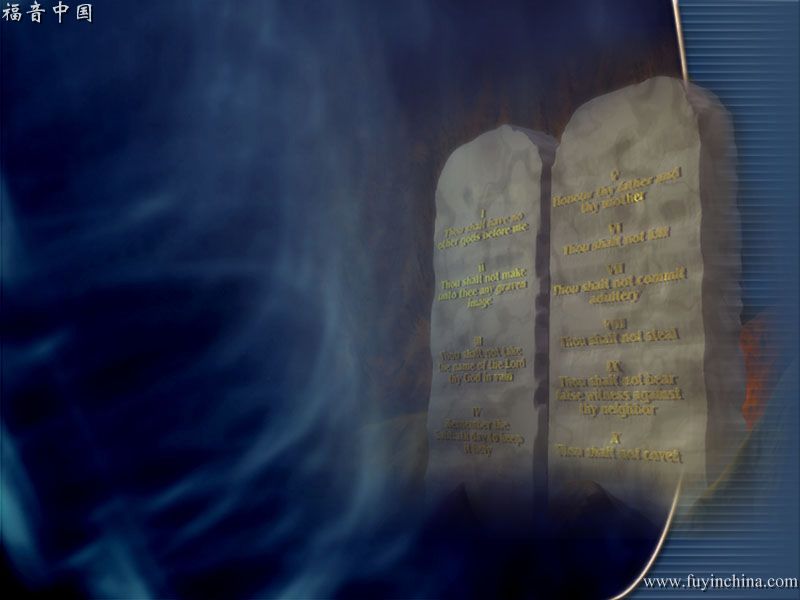 福音中国
I
Thou shalt have no
other gods before me
II
Thou shalt not make
unto thee any graven
image
III
Thou shalt not take
the name of the Lord
thy God in vain
IV
Remember the
Sabbath day to keep
it holy
V
Honour thy father and
thy mother
VI
Thou shalt not kill
VII
Thou shalt not commit
adultery
VIII
Thou shalt not steal
IX
Thou shalt not bear
false witness against
thy neighbor
X
Thou shalt not covet
www.fuyinchina.com